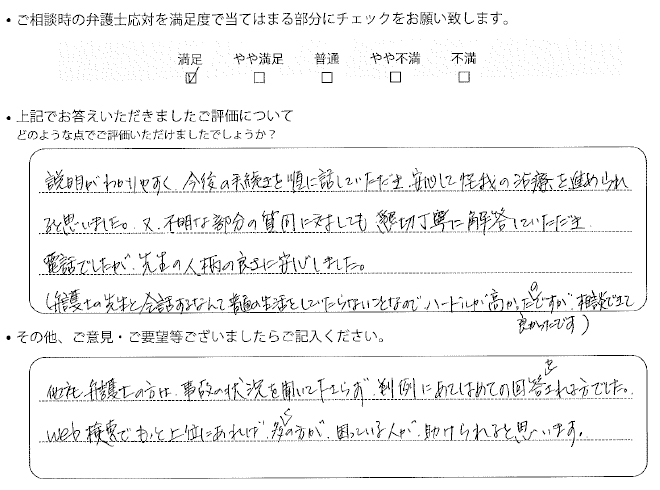 ・ご相談時の弁護士応対を満足度で当てはまる部分にチェックをお願い致します。
満足 やや満足 普通 やや不満 不満
☑ □ □ □ □
・上記でお答えいただきましたご評価について
どのような点でご評価いただけましたでしょうか？
説明がわかりやすく、今後の手続きを順に話していただき、安心して怪我の治療を進められ
ると思いました。又、不明な部分の質問に対しても懇切丁寧に解答していただき
電話でしたが、先生の人柄の良さに安心しました。
(弁護士の先生と会話するなんて普通の生活をしていたらないことなので、ハードルが高かったのですが、相談できて
良かったです)
・その他、ご意見・ご要望等ございましたらご記入ください。
他社弁護士の方は、事故の状況を聞いて下さらず、判例にあてはめての回答をされる方でした。
web検索でもっと上位にあれば、多くの方が、困っている人が、助けられると思います。